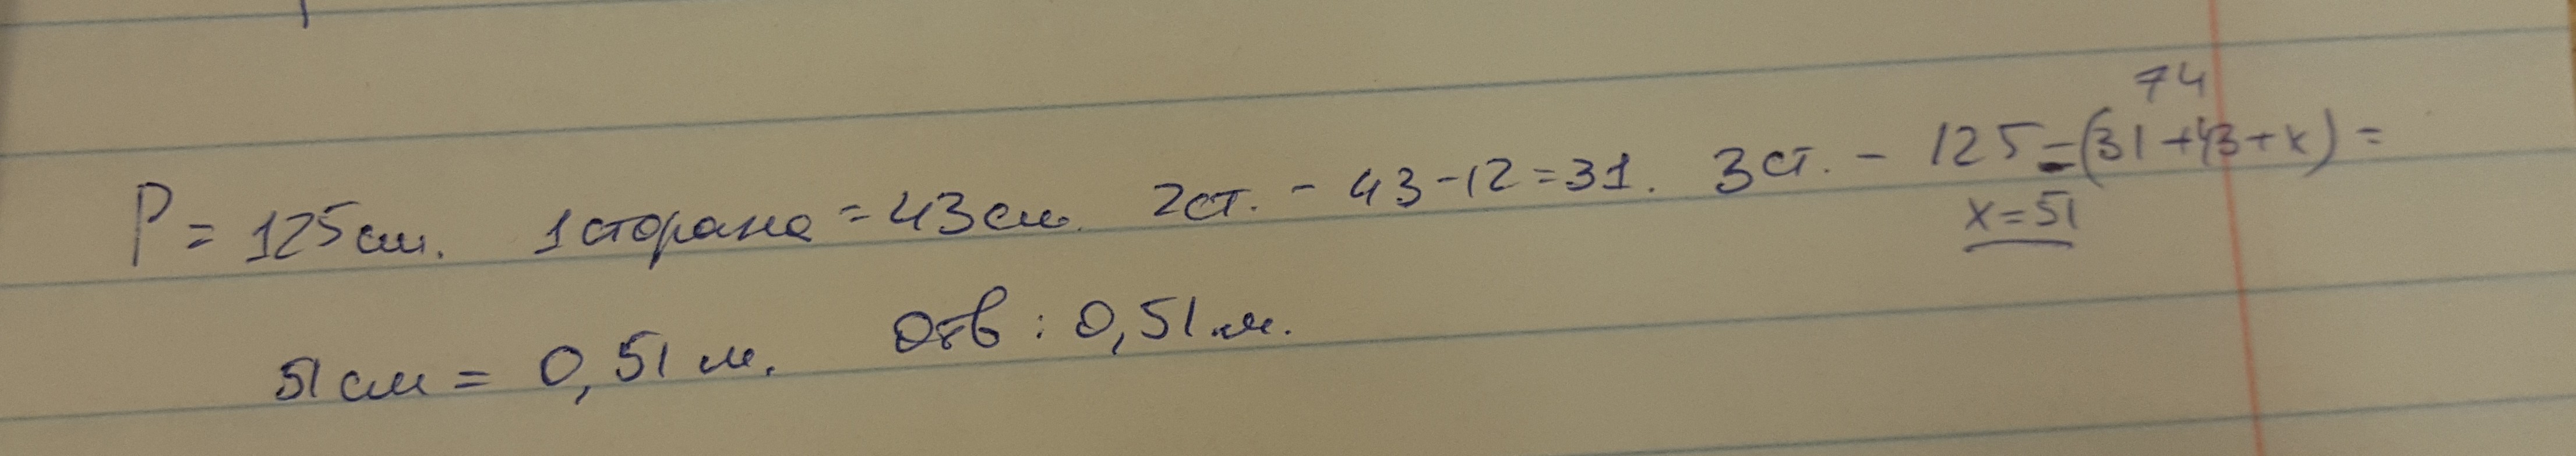 74
P = 125 см. 1 сторана = 43 см. 2 ст. - 43 - 12 = 31. 3 ст. - 125 - (31 + 43 + x) =
x = 51
51 см = 0,51 м. Отв : 0,51 м.